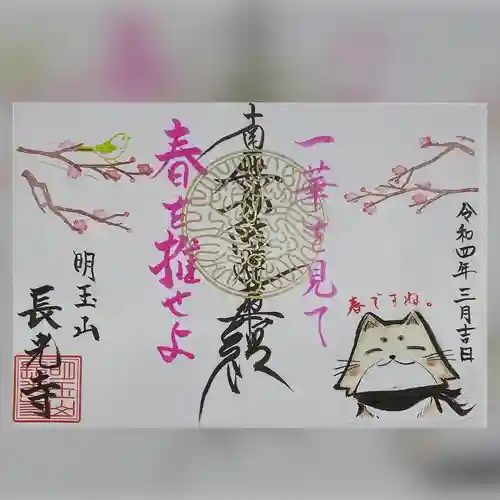 令和四年三月吉日
一華を見て
南無妙法蓮華経
春を推せよ
春ですね。
明玉山
長光寺